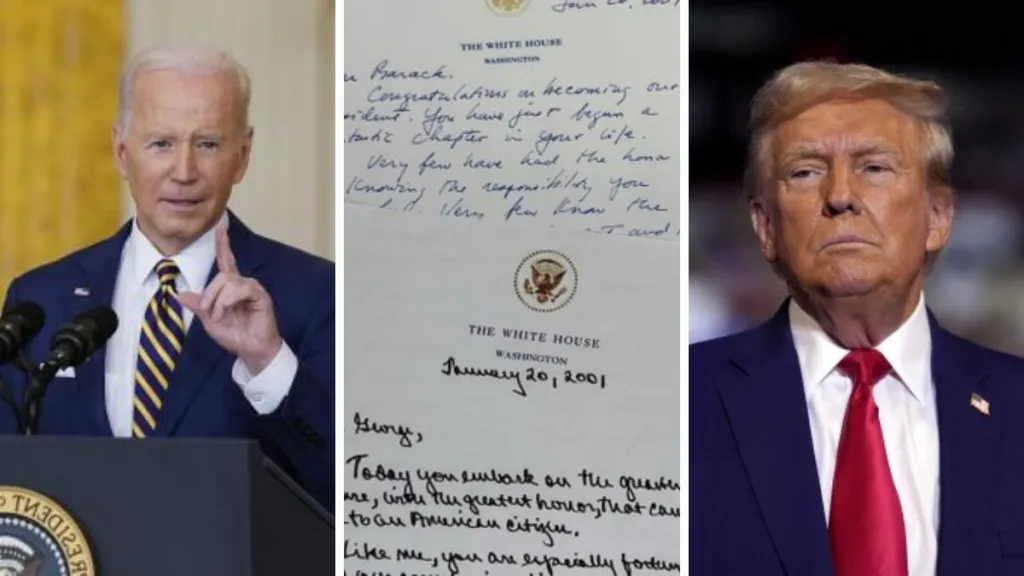 Jan 20,
THE WHITE HOUSE
WASHINGTON
Barack.
Congratulations on becoming our
sident. You have just begun a
tastic Chapter in your life.
Very few have had the honor
Knowing the responsibility you
Very few know the
THE WHITE HOUSE
WASHINGTON
January 20, 2001
George,
Today you embark on the greatest
with the greatest honor, that can
to an American citizen.
Like me, you are especially
PRESIDENT OF